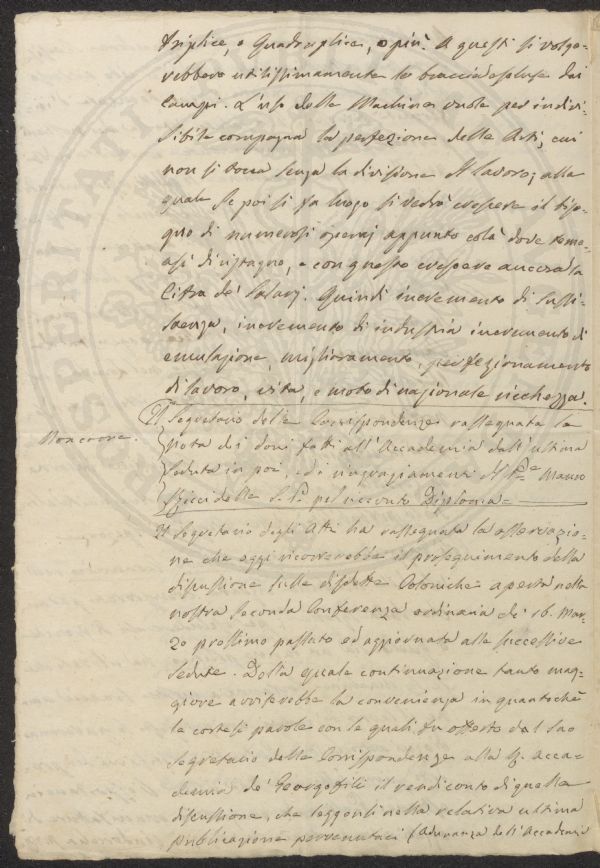 triplice, o quadruplice, o più. A questi si volge-
rebbero utilissimamente le braccia escluse dai
Campi. L'uso delle Machine vuole per indivi-
sibile compagna la perfezione delle Arti, cui
non si tocca senza la divisione del lavoro; alla
quale se poi si fa luogo si vedrà crescere il biso-
gno di numerosi operaj appunto colà dove teme-
asi di ristagno, e con questo crescere ancora la
Cifra de' Salarj. Quindi incremento di Sussi-
stenza, incremento di industria incremento di
emulazione, miglioramento, perfezionamento
di lavoro, vita, e moto di nazionale ricchezza.
Il Segretario delle Corrispondenze rassegnata la
Non corre. nota dei doni fatti all'Accademia dall'ultima
Seduta in poi, ed i ringraziamenti del Mauro
della pel ricevuto Diploma =
Il Segretario degli Atti ha rassegnata la osservazio-
ne che oggi ricorrerebbe il proseguimento della
discussione sulle disdette Coloniche aperta nella
nostra Seconda Conferenza ordinaria de' 16. Mar-
zo prossimo passato ed aggiornata alle successive
Sedute. Dalla quale continuazione tanto mag-
giore avviserebbe la convenienza in quantochè
le cortesi parole con le quali fu offerto dal suo
Segretario delle Corrispondenze alla Acca-
demia de' Georgofili il rendiconto di quella
discussione, che leggonsi nella relativa ultima
Pubblicazione pervenutaci (Adunanza dell'Accademia